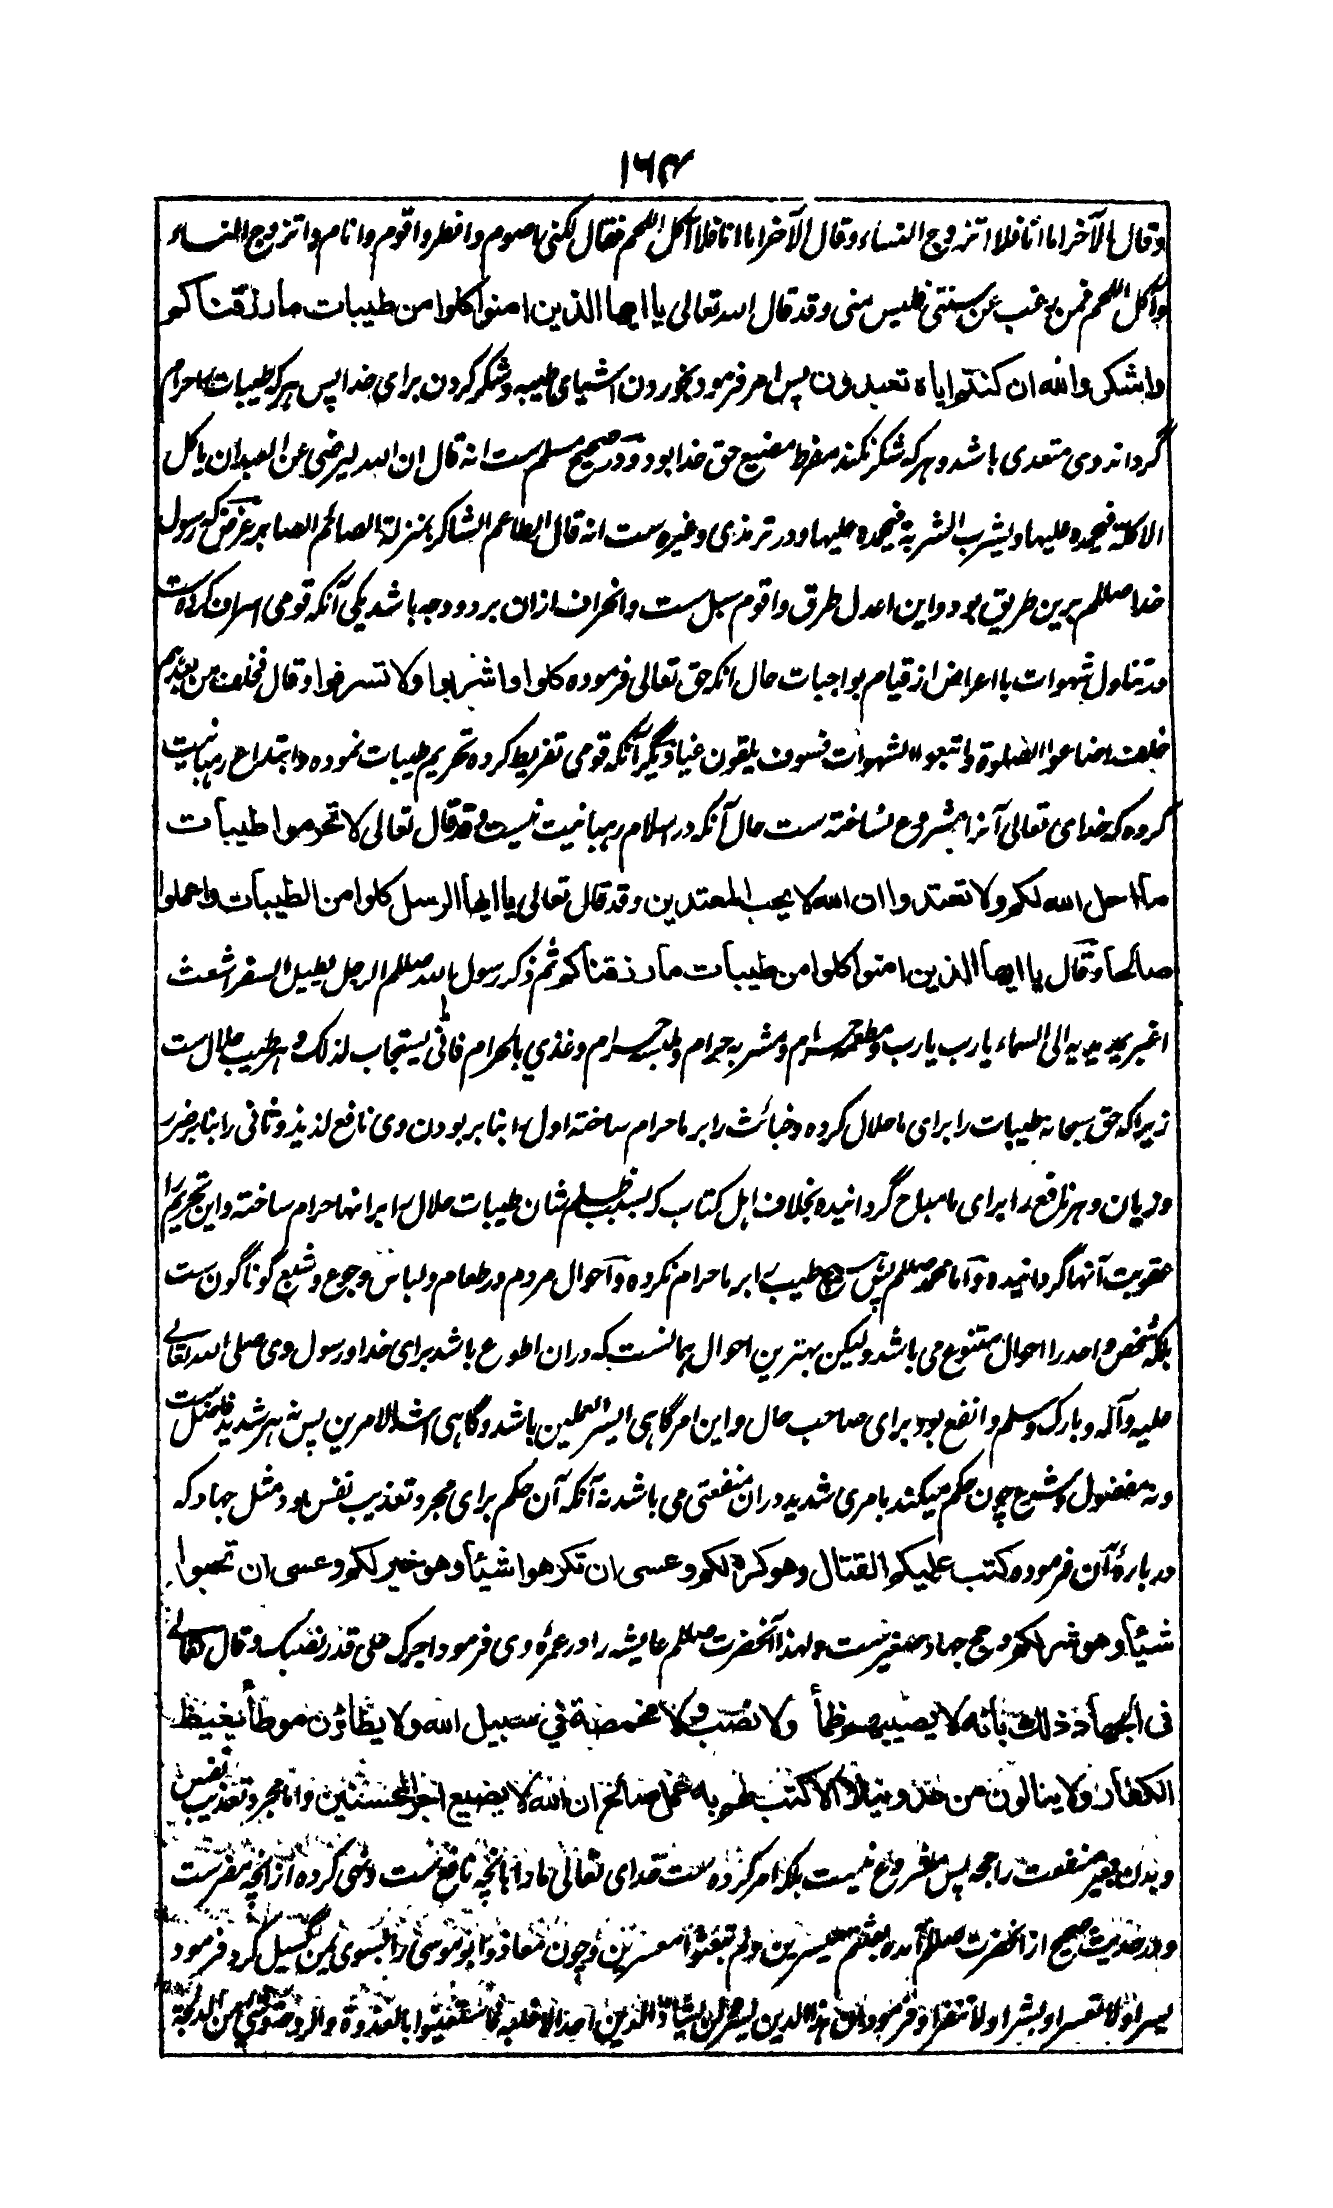 ۱۶۴
وقال الآخر اما انا فلا اتزوج النساء وقال الآخر اما انا فلا آكل اللحم فقال لكنی اصوم وافطر واقوم وانام واتزوج النساء
وآكل اللحم فمن رغب عن سنتی فلیس منی وقد قال الله تعالی یا ایها الذین امنوا كلوا من طیبات ما رزقناكم
واشكروا لله ان كنتم ایاه تعبدون پس امر فرمود بخوردن اشیای طیبه وشكر كردن برای خدا پس هر كه طیبات را حرام
گرداند وی متعدی باشد وهر كه شكر نكند مفرط مضیع حق خدا بود ودر صحیح مسلم ست انه قال ان الله لیرضی عن العبد ان یاكل
الاكلة فیحمده علیها ویشرب الشربة فیحمده علیها ودر ترمذی وغیره ست انه قال الطاعم الشاكر بمنزلة الصائم الصابر غرض كه رسول
خدا صللم برین طریق بود واین اعدل طرق واقوم سبل ست وانحراف ازان بر دو وجه باشد یكی آنكه قومی اسراف كرده ست
در تناول شهوات با اعراض از قیام بواجبات حال انكه حق تعالی فرموده كلوا واشربوا ولا تسرفوا وقال فخلف من بعدهم
خلف اضاعوا الصلوة واتبعوا الشهوات فسوف یلقون غیا دیگر آنكه قومی تفریط كرده تحریم طیبات نموده وابتداع رهبانیت
كرده كه خدای تعالی آنرا مشروع نساخته ست حال آنكه در اسلام رهبانیت نیست وقد قال تعالی لا تحرموا طیبات
ما احل الله لكم ولا تعتدوا ان الله لا یحب المعتدین وقد قال تعالی یا ایها الرسل كلوا من الطیبات واعملوا
صالحا وقال یا ایها الذین امنوا كلوا من طیبات ما رزقناكم ثم ذكر رسول الله صللم الرجل یطیل السفر اشعث
اغبر یمد یدیه الی السماء یارب یارب ومطعمه حرام ومشربه حرام وملبسه حرام وغذی بالحرام فانی یستجاب لذلك وهر طیب حلال ست
زیراكه حق سبحانه طیبات را برای ما حلال كرده وخبائث را بر ما حرام ساخته اول را بنابر بودن وی نافع لذیذ وثانی را بنابر ضرر
وزیان وهر نافع را برای ما مباح گردانیده بخلاف اهل كتاب كه بسبب ظلم شان طیبات حلال را برانها حرام ساخته واین تحریم را
عقوبت آنها گردانیده واما محمد صللم پس هیچ طیب را بر ما حرام نكرده واحوال مردم در طعام ولباس وجوع وشبع گوناگون ست
بلكه شخص واحد را احوال متنوع می باشد ولیكن بهترین احوال همانست كه دران اطوع باشد برای خدا ورسول وی صلی الله تعالے
علیه وآله وبارك وسلم وانفع بود برای صاحب حال واین امر گاهی ایسر العملین باشد وگاهی اشد الامرین پس نه هر شدید فاضل ست
ونه مفضول وشرع چون حكم میكند بامری شدید دران منفعتی می باشد نه آنكه آن حكم برای مجرد تعذیب نفس بود مثل جهاد كه
دربارۀ آن فرموده كتب علیكم القتال وهو كره لكم وعسی ان تكرهوا شیئا وهو خیر لكم وعسی ان تحبوا
شیئا وهو شر لكم وحج جهاد صغیر ست ولهذا آنحضرت صللم عایشه را در عمرۀ وی فرمود اجرك علی قدر نصبك وقال تعالے
فی الجهاد ذلك بانه لا یصیبهم ظمأ ولا نصب ولا مخمصة فی سبیل الله ولا یطاؤن موطأ یغیظ
الكفار ولا ینالون من عدو نیلا الا كتب لهم به عمل صالح ان الله لا یضیع اجر المحسنین واما مجرد تعذیب نفس
وبدن بغیر منفعت راجحه پس مشروع نیست بلكه امر كرده ست خدای تعالی ما را بانچه نافع ست ونهی كرده از انچه مضر ست
ودر حدیث صحیح از انحضرت صللم آمده بعثتم میسرین ولم تبعثوا معسرین وچون معاذ وابو موسی را بسوی یمن گسیل كرد فرمود
یسرا ولا تعسرا وبشرا ولا تنفرا وفرمود ان هذا الدین یسر ولن یشاد الدین احد الا غلبه فاستعینوا بالغدوة والروحة وشی من الدلجة